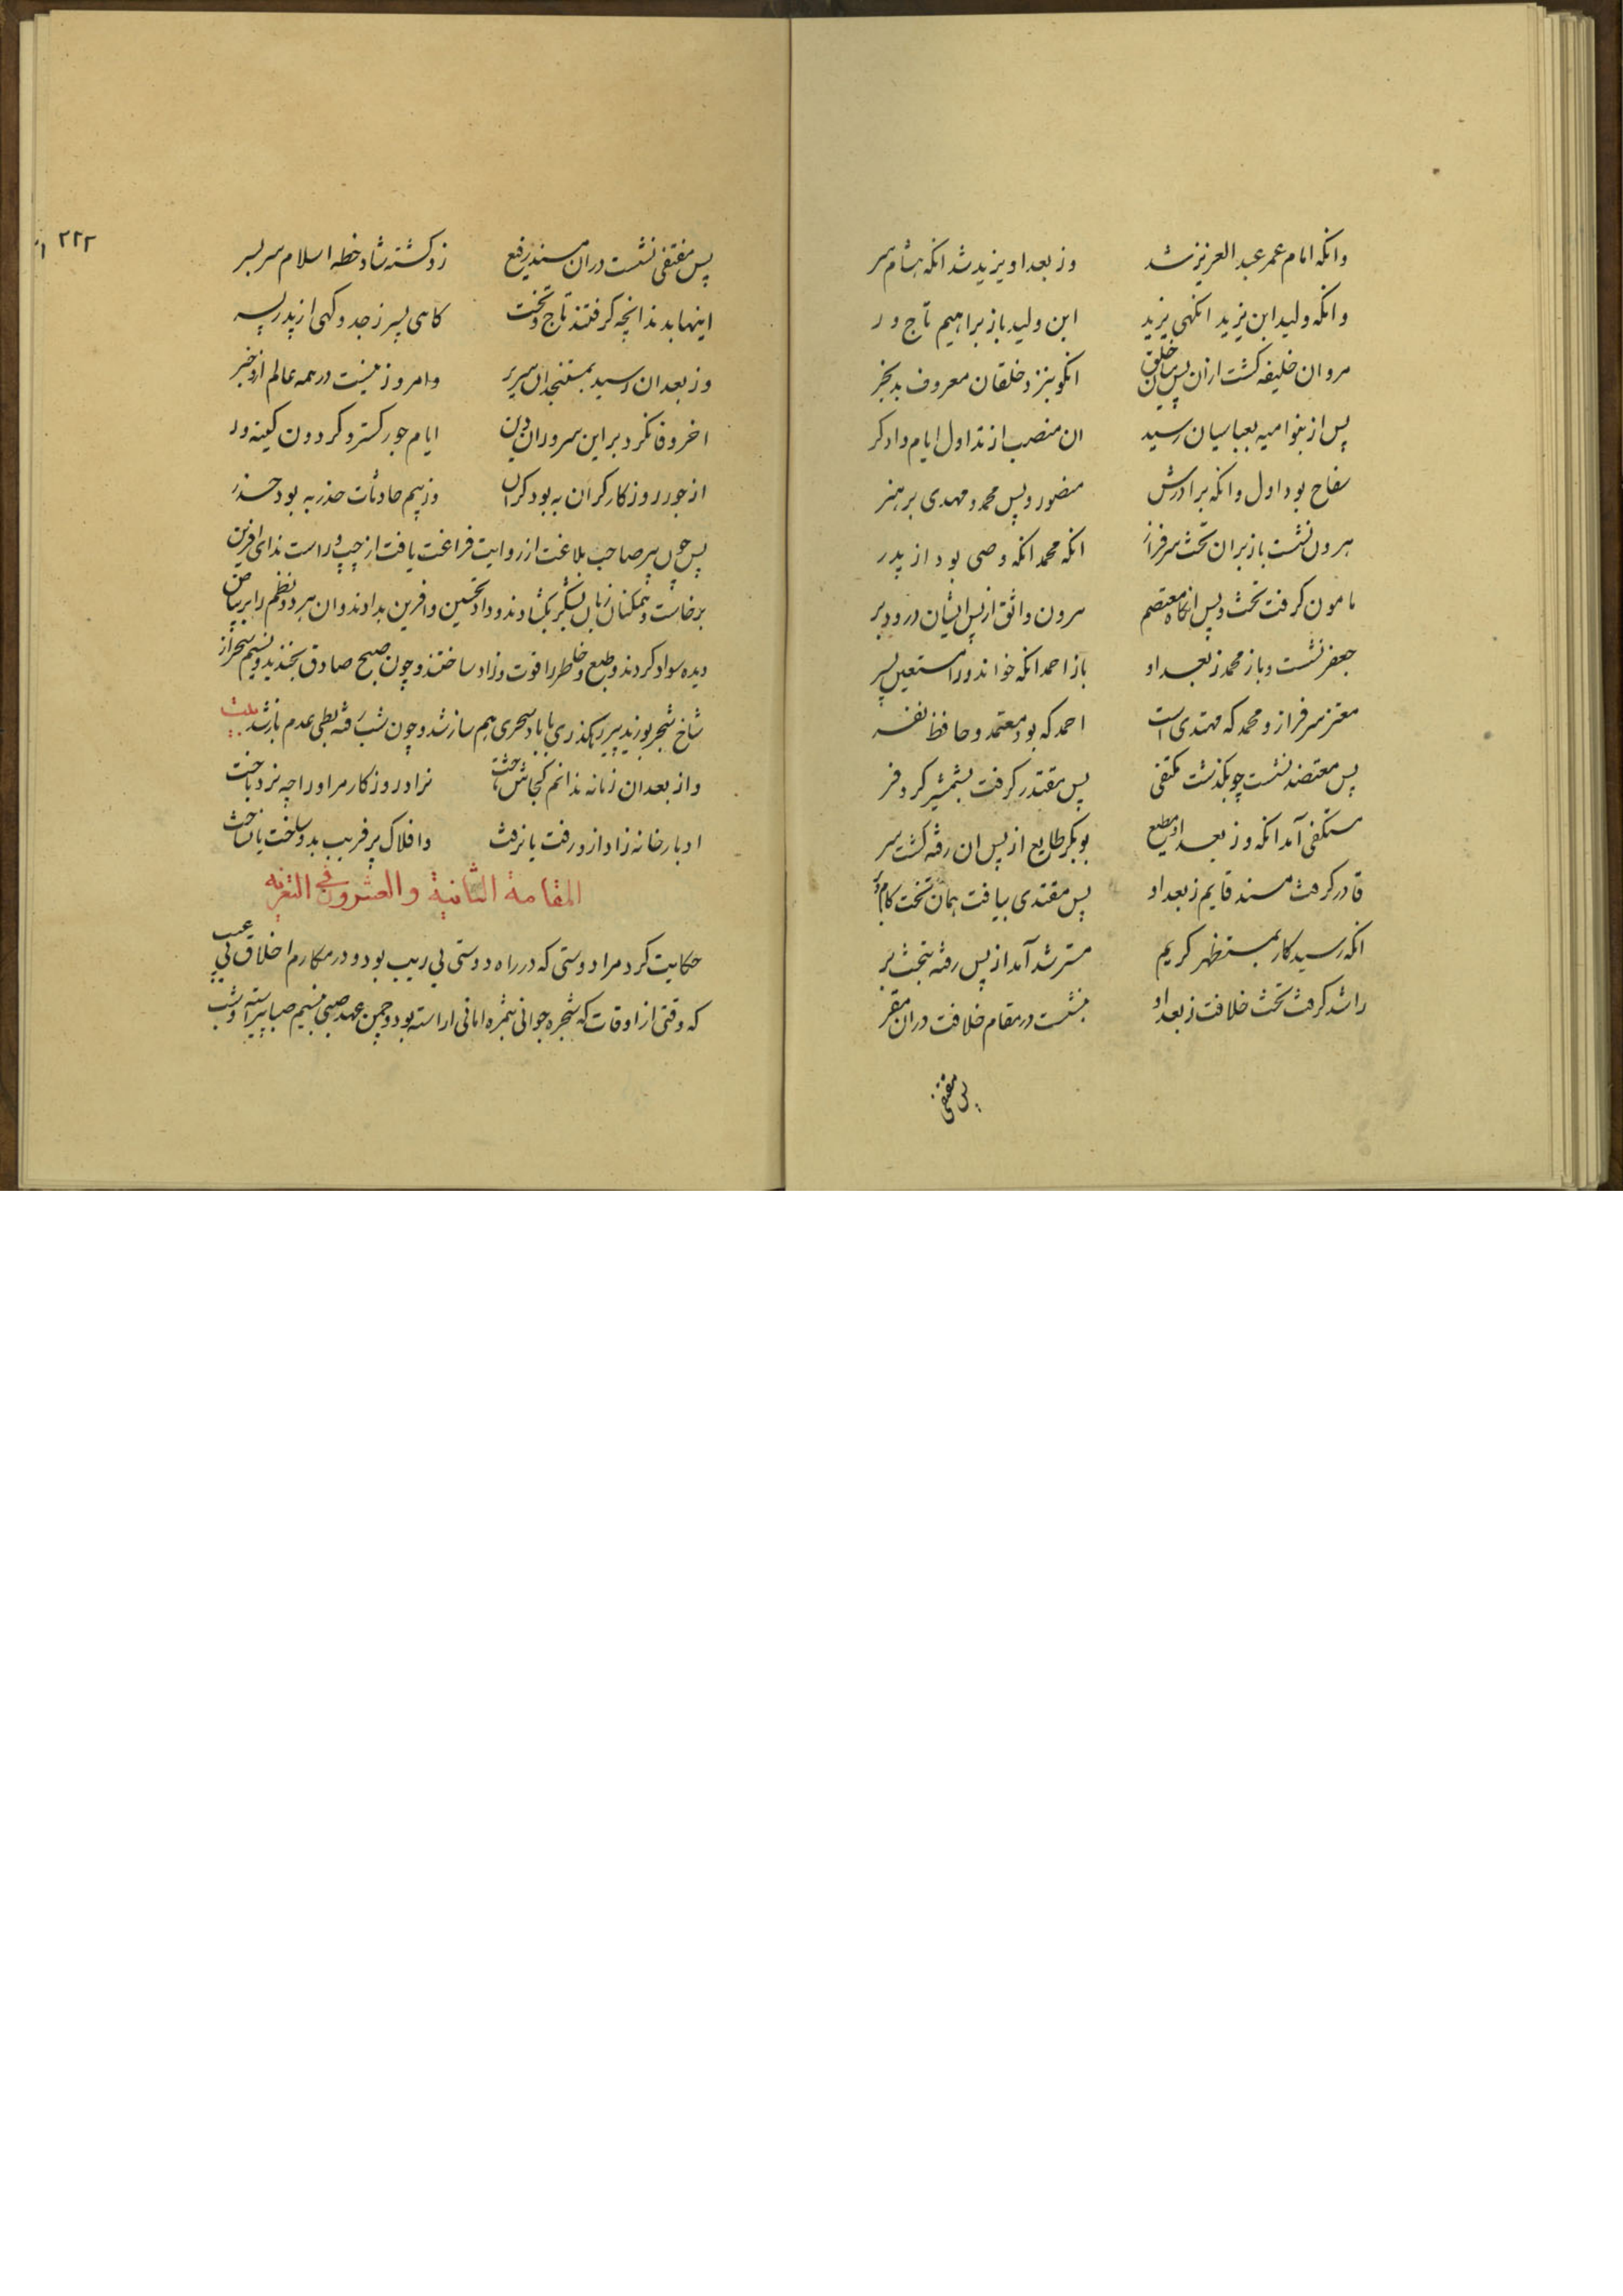 وانکه امام عمر عبد العزیز شد وز بعد او یزید شد انکه هشام سر
وانکه ولید ابن یزید انکهی یزید ابن ولید باز براهیم تاج ور
مروان خلیفه کشت ازان پس بیان خلق انکو بنزد خلقان معروف بد بخر
پس از بنو امیه بعباسیان رسید ان منصب از تداول ایام دادکر
سفاح بود اول وانکه برادرش منصور و پس محمد و مهدی بر هنر
هرون نشست باز بران تخت سرفراز انکه محمد انکه وصی بود از پدر
مامون کرفت تخت و پس انکاه معتصم هرون واثق از پس ایشان درود بر
جعفر نشست و باز محمد ز بعد او باز احمد انکه خواند ورا مستعین پسر
معتز سرفراز و محمد که مهتدی است احمد که بود معتمد و حافظ نفر
پس معتضد نشست چو بکذشت مکتفی پس مقتدر کرفت بشمشیر کر و فر
مستکفی آمد انکه وز بعد او مطیع بوبکر طایع از پس ان رفته کشت سر
قادر کرفت مسند قایم ز بعد او پس مقتدی بیافت همان تخت
انکه رسید کار بمستظهر کریم مسترشد آمد از پس رفته بتخت بر
راشد کرفت تخت خلافت ز بعد او بنشست در مقام خلافت دران مقر
پس مقتفی
۲۲۲
پس مقتفی نشست دران مسند رفیع زو کشته شاد خطه اسلام سر بسر
اینها بدند انچه کرفتند تاج و تخت کاهی پسر ز جد و کهی از پدر پسر
وز بعد ان رسید بمستنجد ان سریر وامروز نیست در همه عالم ازو خبر
اخر وفا نکرد بر این سروران دین ایام جور کستر و کردون کینه ور
از جور روزکار کران به بود کران وز بیم حادثات حذر به بود حذر
پس چون پیر صاحب بلاغت از روایت فراغت یافت از چپ و راست ندای افرین
برخاست و همکنان زبان بشکر بکشادند و داد تحسین و افرین بدادند و ان هر دو نظم را بر بیاض
دیده سواد کردند و طبع و خاطر را قوت و زاد ساختند و چون صبح صادق بخندید و نسیم سحر از
شاخ شجر بوزید پیر رهکذری با باد سحری هم ساز شد و چون شب رفته بطی عدم باز شد بیت
واز بعد ان زمانه ندانم کجاش تاخت نراد روزکار مر او را چه نرد باخت
ادبار خانه زاد ازو رفت یا نرفت وافلاک پر فریب بدو ساخت یا نساخت
المقامة الثانیة والعشرون فی التعزیه
حکایت کرد مرا دوستی که در راه دوستی بی ریب بود و در مکارم اخلاق بی عیب
که وقتی از اوقات که شجره جوانی بثمره امانی اراسته بود و چمن عهد صبی بنسیم صبا پیراسته و شب